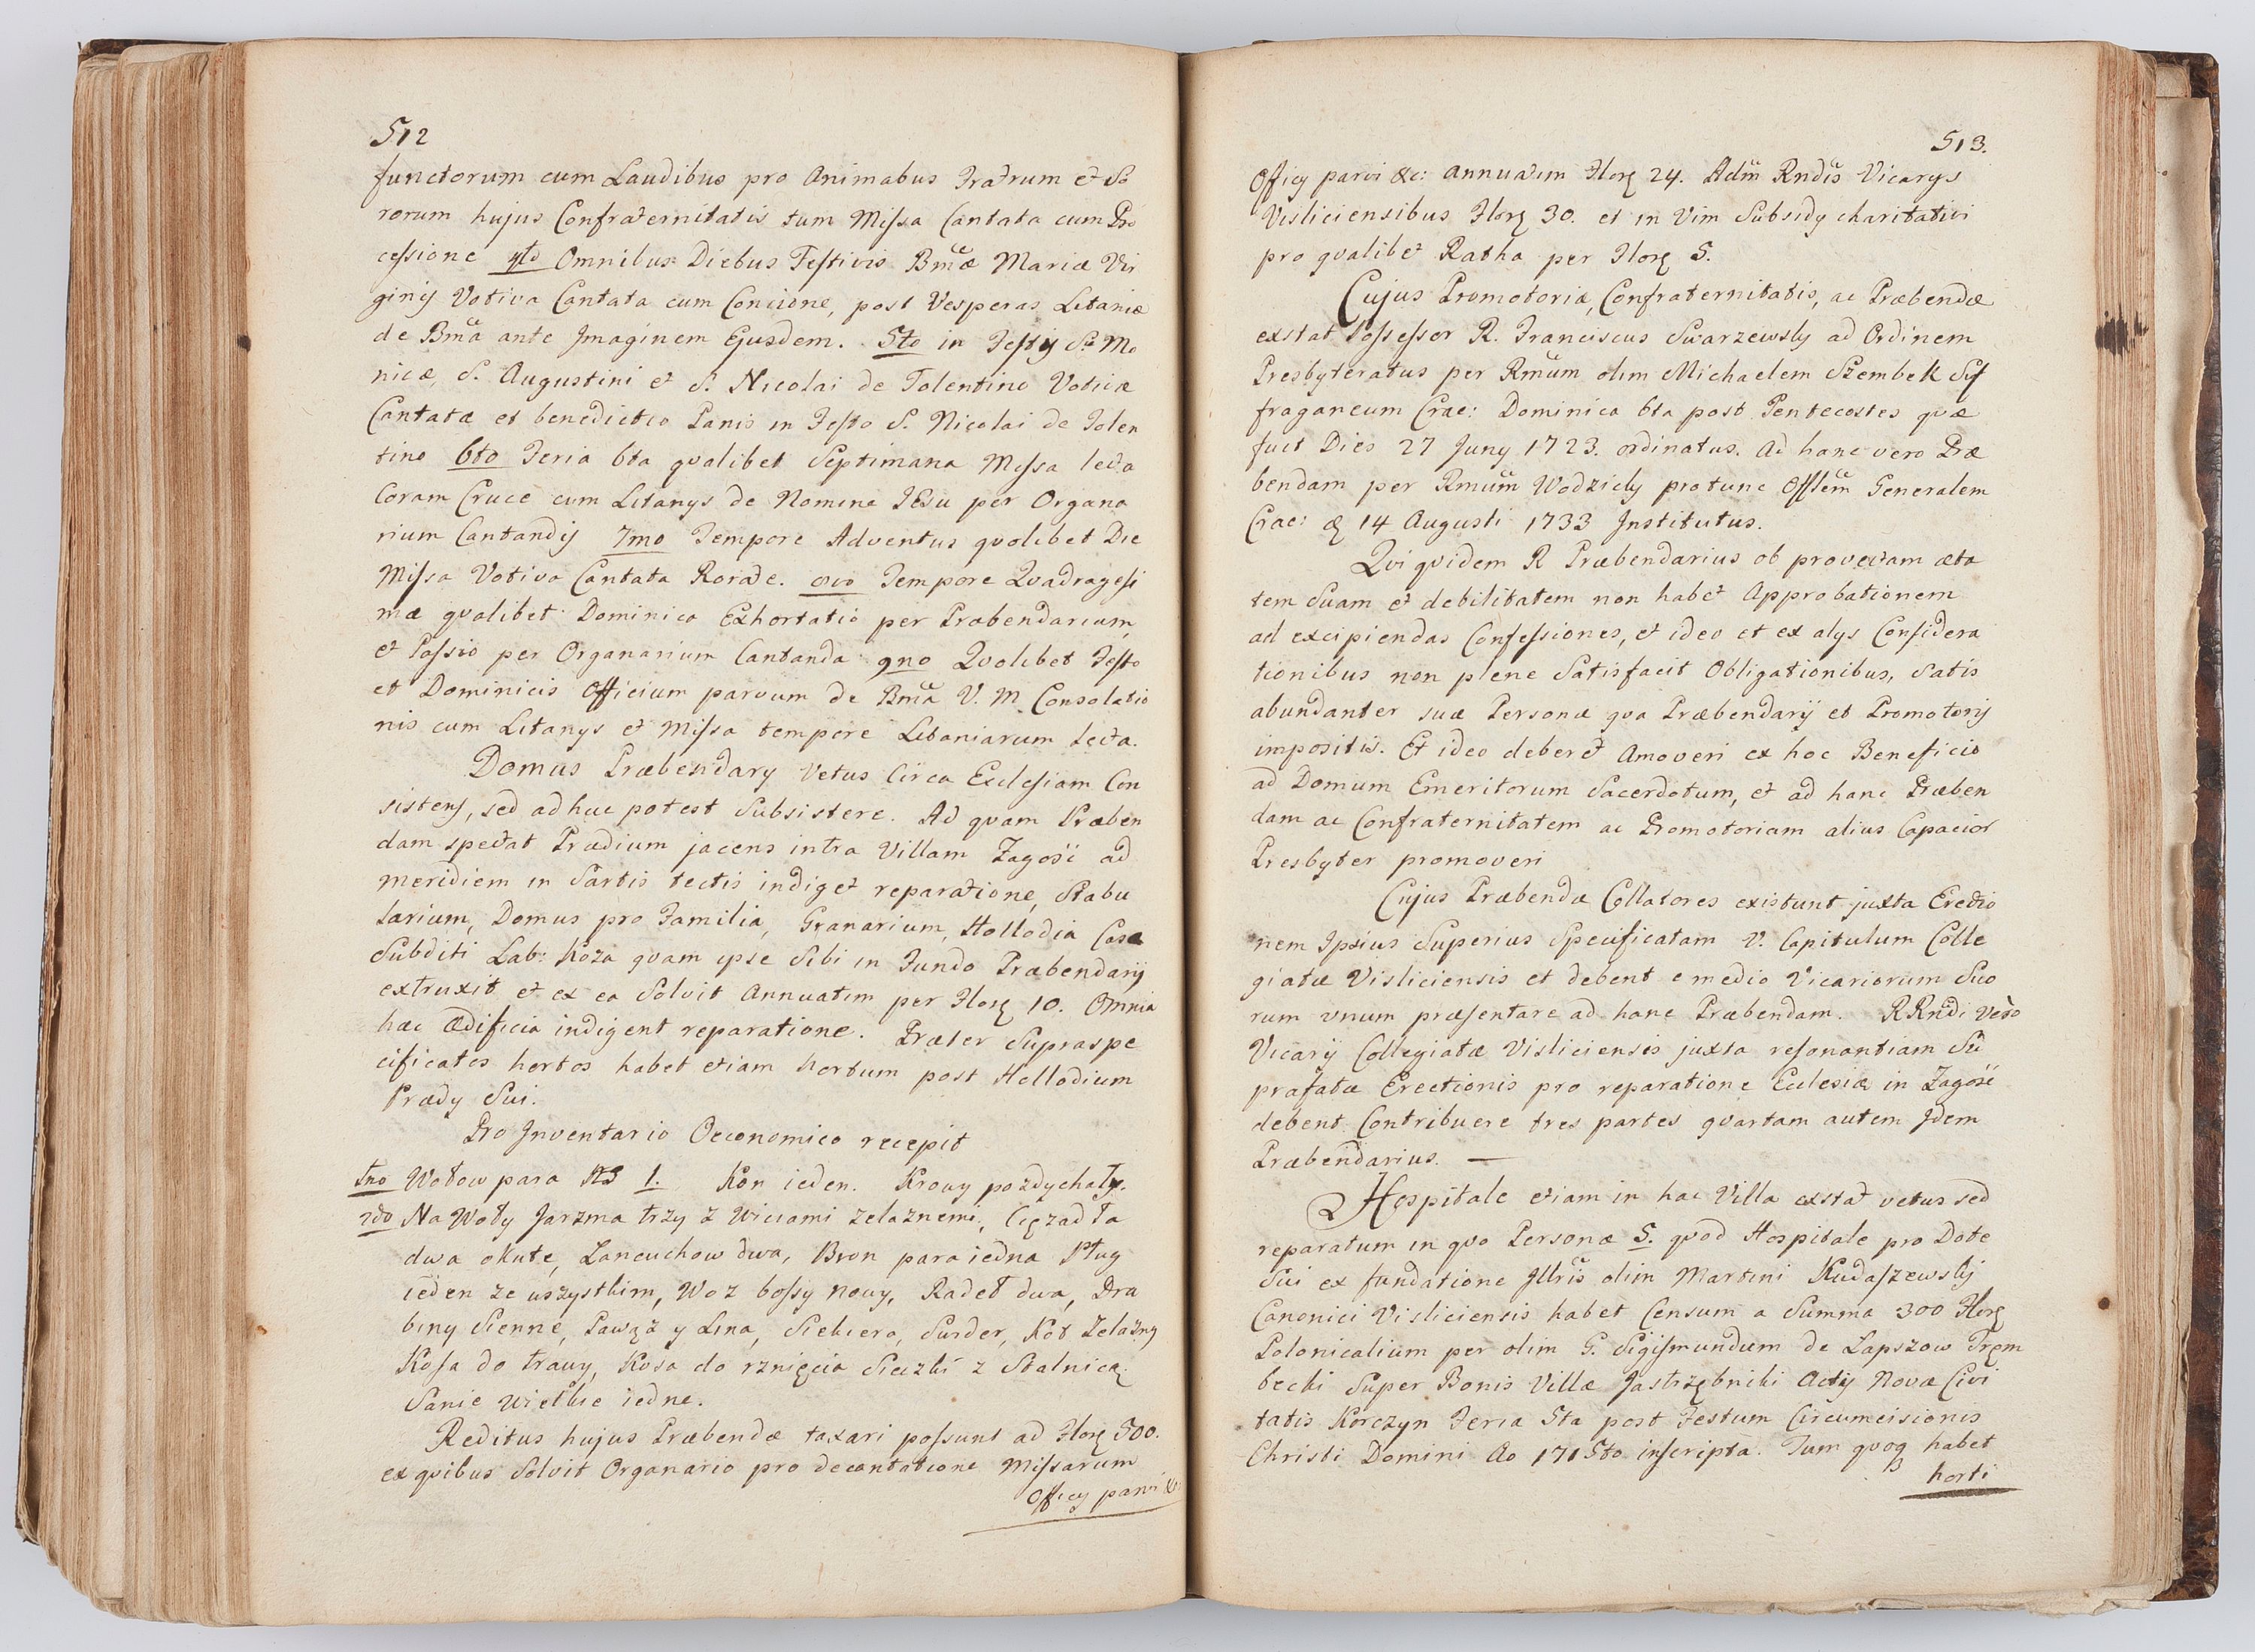 512
functorum cum Laudibus pro Animabus Fratrum et So
rorum hujus Confraternitatis tum Missa Cantata cum Pro
cessione 4to Omnibus Diebus Festivis Bmæ Mariæ Vir
ginis Votiva Cantata cum Concione, post Vesperas Litaniæ
de Bma ante Imaginem Ejusdem. 5to in Festis S. Mo
nicæ, S. Augustini et S. Nicolai de Tolentino Votivæ
Cantatæ et benedictio Panis in Festo S. Nicolai de Tolen
tino 6to Feria 6ta qvalibet Septimana Missa lecta
Coram Cruce cum Litanys de Nomine JEsu per Organa
rium Cantandis 7mo Tempore Adventus qvolibet Die
Missa Votiva Cantata Rorate. 8vo Tempore Qvadragesi
mæ qvalibet Dominica Exhortatio per Præbendarium
et Passio per Organarium Cantanda 9no Qvolibet Festo
et Dominicis Officium parvum de Bma V. M. Consolatio
nis cum Litanys et Missa tempore Litaniarum lecta.
Domus Præbendary Vetus Circa Ecclesiam Con
sistens, sed adhuc potest Subsistere. Ad qvam Præben
dam spectat Prædium jacens intra Villam Zagość ad
meridiem in Sartis tectis indiget reparatione, Stabu
larium, Domus pro Familia, Granarium, Hollodia Casa
Subditi Lab: Koza qvam ipse Sibi in Fundo Præbendarij
extruxit et ex ea Solvit Annuatim per Flor 10. Omnia
hæc Ædificia indigent reparatione. Præter Supraspe
cificatos hortos habet etiam hortum post Hollodium
Prædy Sui.
Pro Inventario Oeconomico recepit
1mo Wołow para N3 1. Kon ieden. Krowy pozdychały.
2do Na Woły Jarzma trzy z Wiciami zelaznemi, Cięzadła
dwa okute, Lancuchow dwa, Bron para iedna Pług
ieden ze wszystkim, Woz bossy nowy, Radeł dwa, Dra
biny Sienne, Pawąz y Lina, Siekiera, Swider, Koł Zelazny
Kosa do trawy, Kosa do rznięcia Sieczki z Stalnicą
Sanie wielkie iedne.
Reditus hujus Præbendæ taxari possunt ad Flor 300.
ex qvibus Solvit Organario pro decantatione Missarum
Officy parvi &
513.
Officy parvi &c: annuatim Flor 24. Adm Rndis Vicarys
Visliciensibus Flor 30. et in Vim Subsidy charitativi
pro qvalibet Ratha per Flor 5.
Cujus Promotoriæ, Confraternitatis, ac Præbendæ
exstat Possessor R. Franciscus Swarzewsky ad Ordinem
Presbyteratus per Rmum olim Michaelem Szembek Suf
fraganeum Crac: Dominica 6ta post Pentecostes qvæ
fuit Dies 27 Juny 1723. ordinatus. Ad hanc vero Præ
bendam per Rmum Wodzicky protunc Offlem Generalem
Crac: 14 Augusti 1733 Institutus.
Qvi qvidem R Præbendarius ob provectam æta
tem Suam et debilitatem non habet Approbationem
ad excipiendas Confessiones, et ideo et ex alys Considera
tionibus non plene Satisfacit Obligationibus, satis
abundanter suæ Personæ qva Præbendarij et Promotorij
impositis. Et ideo deberet Amoveri ex hoc Beneficio
ad Domum Emeritorum Sacerdotum, et ad hanc Præben
dam ac Confraternitatem ac Promotoriam alius Capacior
Presbyter promoveri
Cujus Præbendæ Collatores existunt juxta Erectio
nem Ipsius Superius Specificatam V. Capitulum Colle
giatæ Visliciensis et debent e medio Vicariorum Suo
rum vnum præsentare ad hanc Præbendam. RRndi verò
Vicarij Collegiatæ Visliciensis juxta resonantiam Su
præfatæ Erectionis pro reparatione Ecclesiæ in Zagość
debent Contribuere tres partes qvartam autem Idem
Præbendarius. —
Hospitale etiam in hac Villa exstat vetus sed
reparatum in qvo Personæ 5. qvod Hospitale pro Dote
Sui ex fundatione Illris olim Martini Kudaszewskj
Canonici Visliciensis habet Censum a Summa 300 Flor
Polonicalium per olim G. Sigismundum de Lapszow Tręm
becki Super Bonis Villæ Jastrzębniki Actis Novæ Civi
tatis Korczyn Feria 5ta post Festum Circumcisionis
Christi Domini Ao 1715to inscripta. Tum qvoq habet
horti